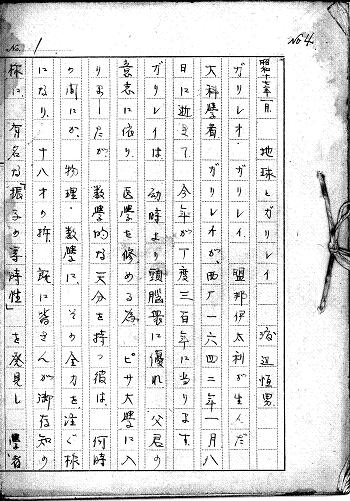 No. 1
No 4
昭和十七年一月. 地球とガリレイ 渡辺慎男
ガリレオ・ガリレイ. 盟邦伊太利が生んだ
大科学者 ガリレイが、西暦一六四二年一月八
日に逝きて 今年が丁度三百年に当ります.
ガリレイは 幼時より頭脳衆に優れ 父君の
意志に依り 医学を修める為 ピサ大学に入
りましたが 数学的な天分を持つ彼は、何時
の間にか、物理・数学に その全力を注ぐ様
になり. 十八才の時、既に皆さんが御存知の
様に 有名な「振子の等時性」を発見し 学者